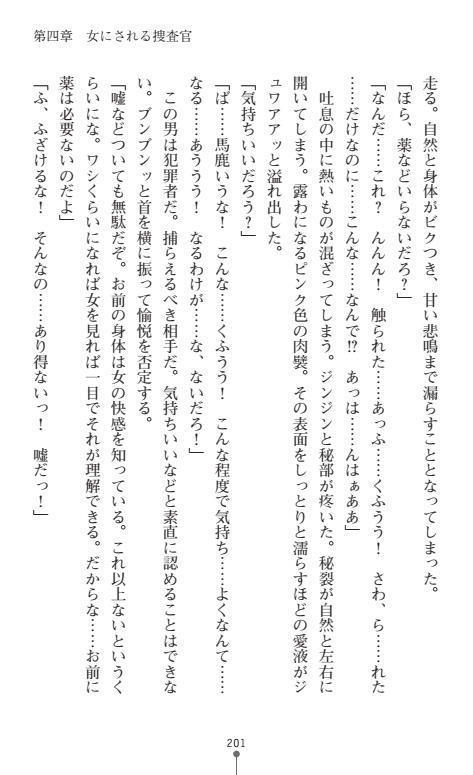 第四章　女にされる捜査官
走る。自然と身体がビクつき、甘い悲鳴まで漏らすこととなってしまった。
「ほら、薬などいらないだろ？」
「なんだ……これ？　んんん！　触られた……あっふ……くふうう！　さわ、ら……れた
……だけなのに……こんな……なんで⁉　あっは……んはぁああ」
　吐息の中に熱いものが混ざってしまう。ジンジンと秘部が疼いた。秘裂が自然と左右に
開いてしまう。露わになるピンク色の肉襞。その表面をしっとりと濡らすほどの愛液がジ
ュワアアッと溢れ出した。
「気持ちいいだろう？」
「ば……馬鹿いうな！　こんな……くふうう！　こんな程度で気持ち……よくなんて……
なる……あううう！　なるわけが……な、ないだろ！」
　この男は犯罪者だ。捕らえるべき相手だ。気持ちいいなどと素直に認めることはできな
い。ブンブンッと首を横に振って愉悦を否定する。
「嘘などついても無駄だぞ。お前の身体は女の快感を知っている。これ以上ないというく
らいにな。ワシくらいになれば女を見れば一目でそれが理解できる。だからな……お前に
薬は必要ないのだよ」
「ふ、ふざけるな！　そんなの……あり得ないっ！　嘘だっ！」
201